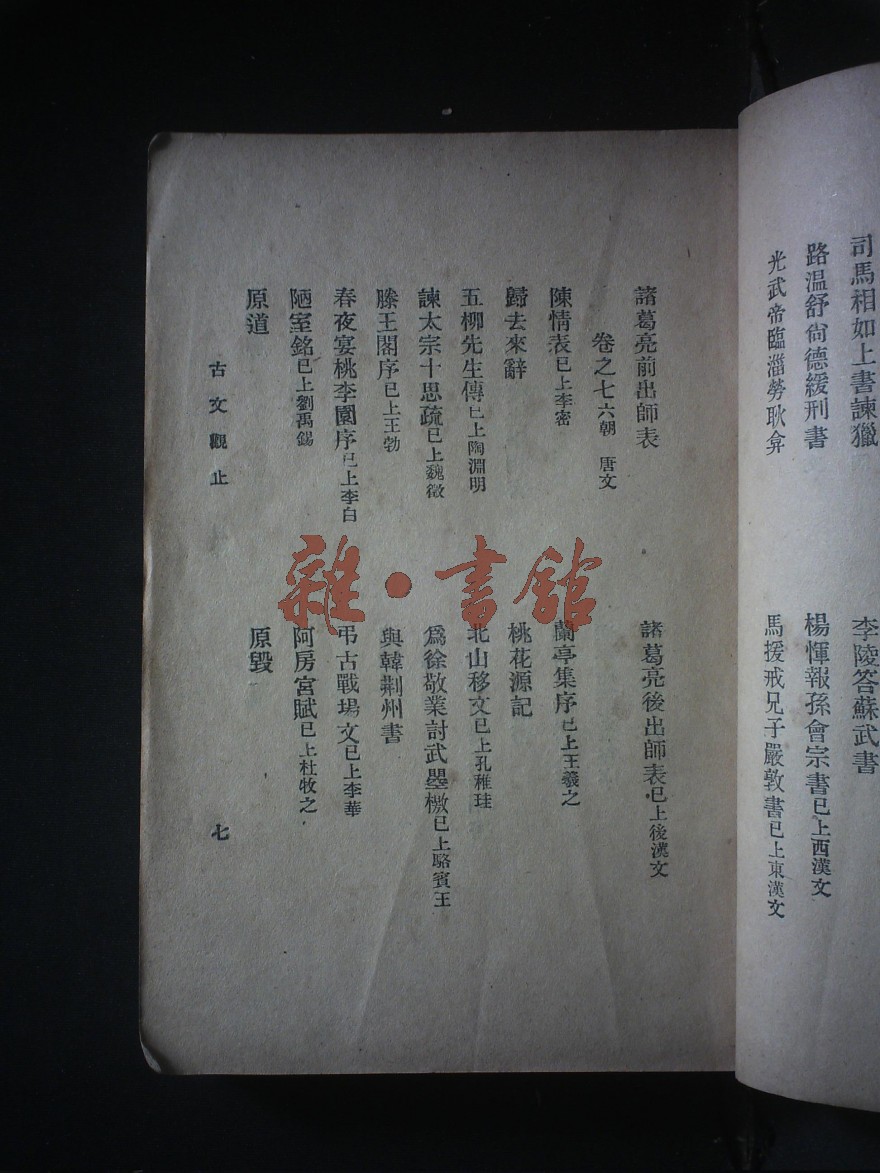 司馬相如上書諫獵
李陵答蘇武書
路溫舒尙德緩刑書
楊惲報孫會宗書已上西漢文
光武帝臨淄勞耿弇
馬援戒兄子嚴敦書已上東漢文
諸葛亮前出師表
諸葛亮後出師表已上後漢文
卷之七六朝 唐文
陳情表已上李密
蘭亭集序已上王羲之
歸去來辭
桃花源記
五柳先生傳已上陶淵明
北山移文已上孔稚珪
諫太宗十思疏已上魏徵
爲徐敬業討武曌檄已上駱賓王
滕王閣序已上王勃
與韓荆州書
春夜宴桃李園序已上李白
弔古戰場文已上李華
陋室銘已上劉禹錫
阿房宮賦已上杜牧之
原道
原毀
古文觀止
七
雜·書館